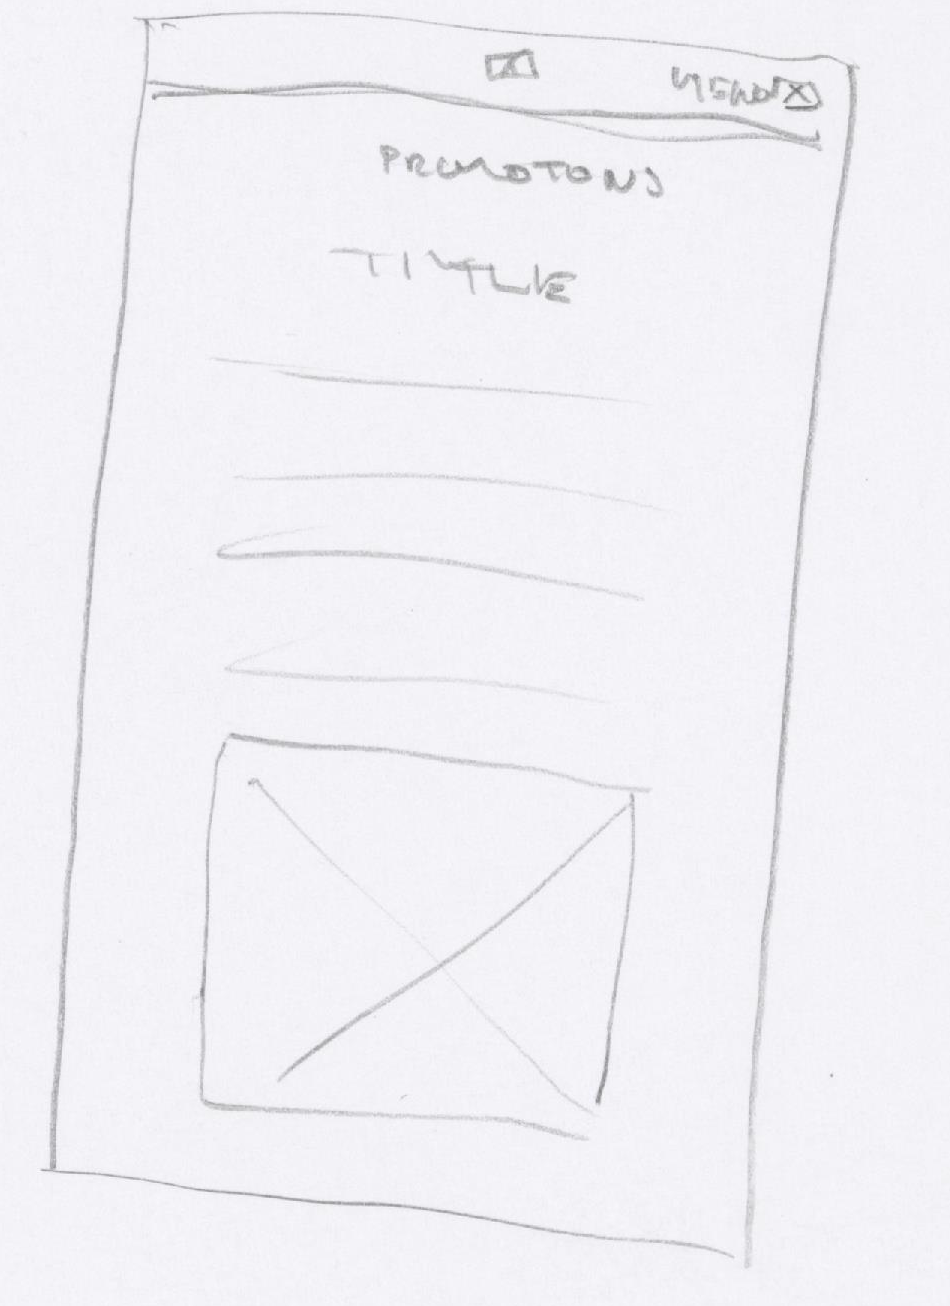 MENU
PROMOTONS
TITLE